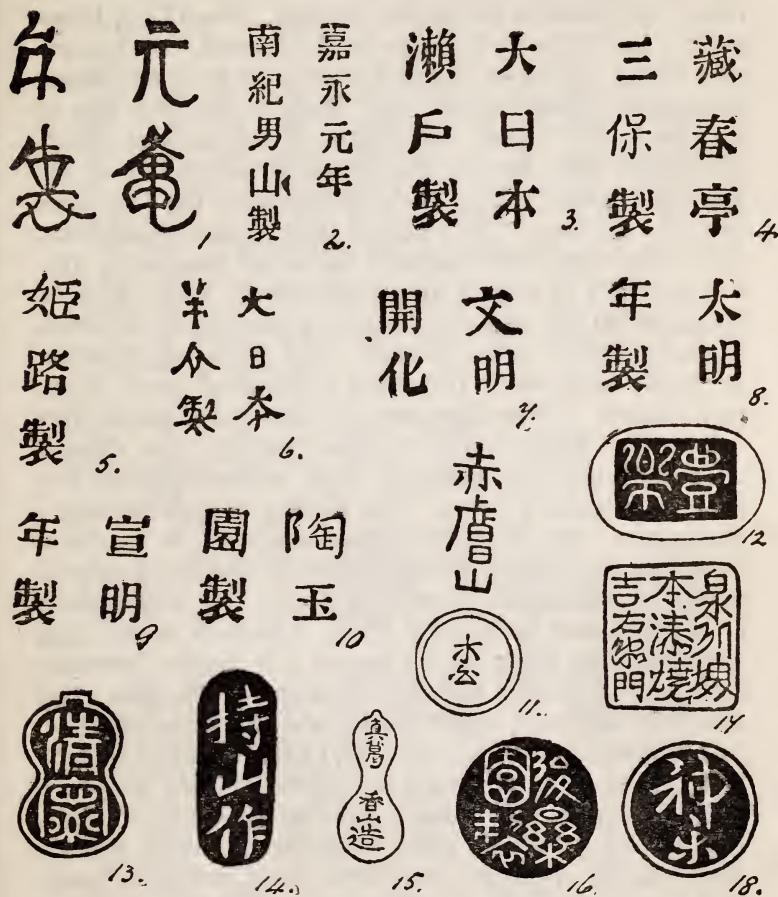 元亀
年製
1
嘉永元年
南紀男山製
2.
大日本
瀨戶製
3.
藏春亭
三保製
4.
姬路製
5.
大日本
半介製
6.
文明
開化
7.
太明
年製
8.
宣明
年製
9
陶玉
園製
10
赤膚山
木公
11.
豊樂
12
泉州堺
本湊燒
吉右衛門
17
13.
持山作
14.
眞葛
香山造
15.
園
16.
神
18.